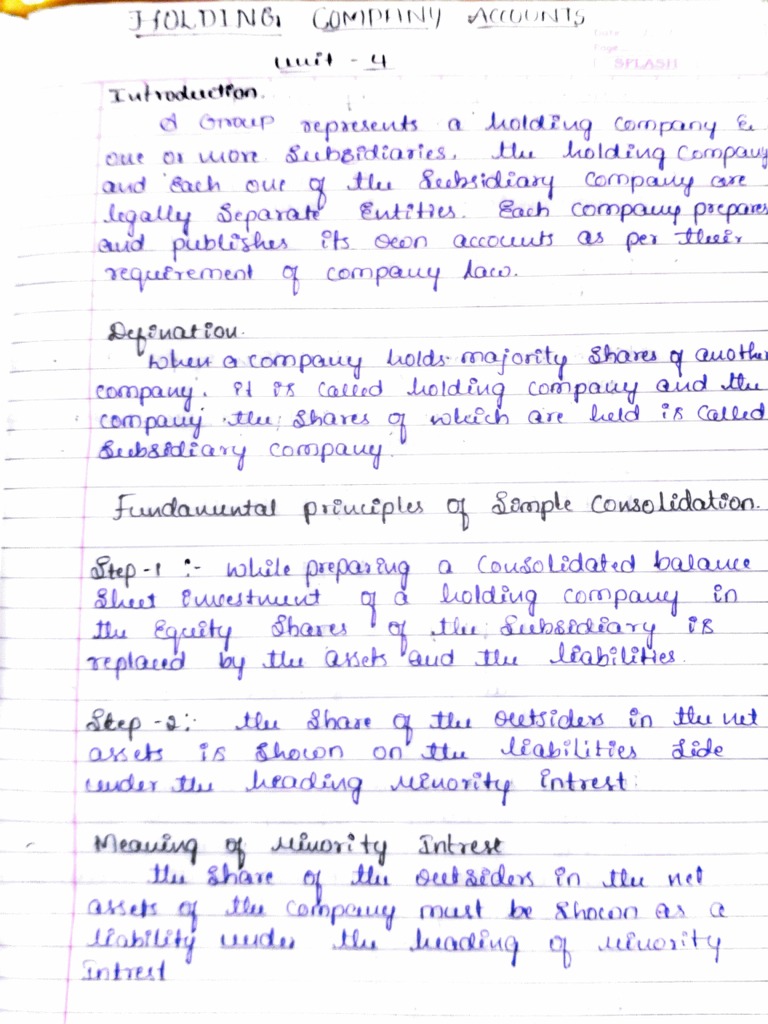 HOLDING COMPANY ACCOUNTS
Unit - 4
SPLASH
Introduction.
A Group represents a holding company &
one or more Subsidiaries. the holding company
and Each one of the Subsidiary company are
legally Separate Entities. Each company prepares
and publishes its own accounts as per their
requirement of company law.
Defination.
When a company holds majority Shares of another
company. it is called holding company and the
company the Shares of which are held is called
Subsidiary company.
Fundamental principles of Simple Consolidation.
Step-1 :- while preparing a consolidated balance
Sheet investment of a holding company in
the Equity Shares of the Subsidiary is
replaced by the assets and the liabilities.
Step -2:- the Share of the outsiders in the net
assets is Shown on the liabilities Side
under the heading minority intrest.
Meaning of minority Intrest
the Share of the outsiders in the net
assets of the company must be Shown as a
liability under the heading of minority
Intrest